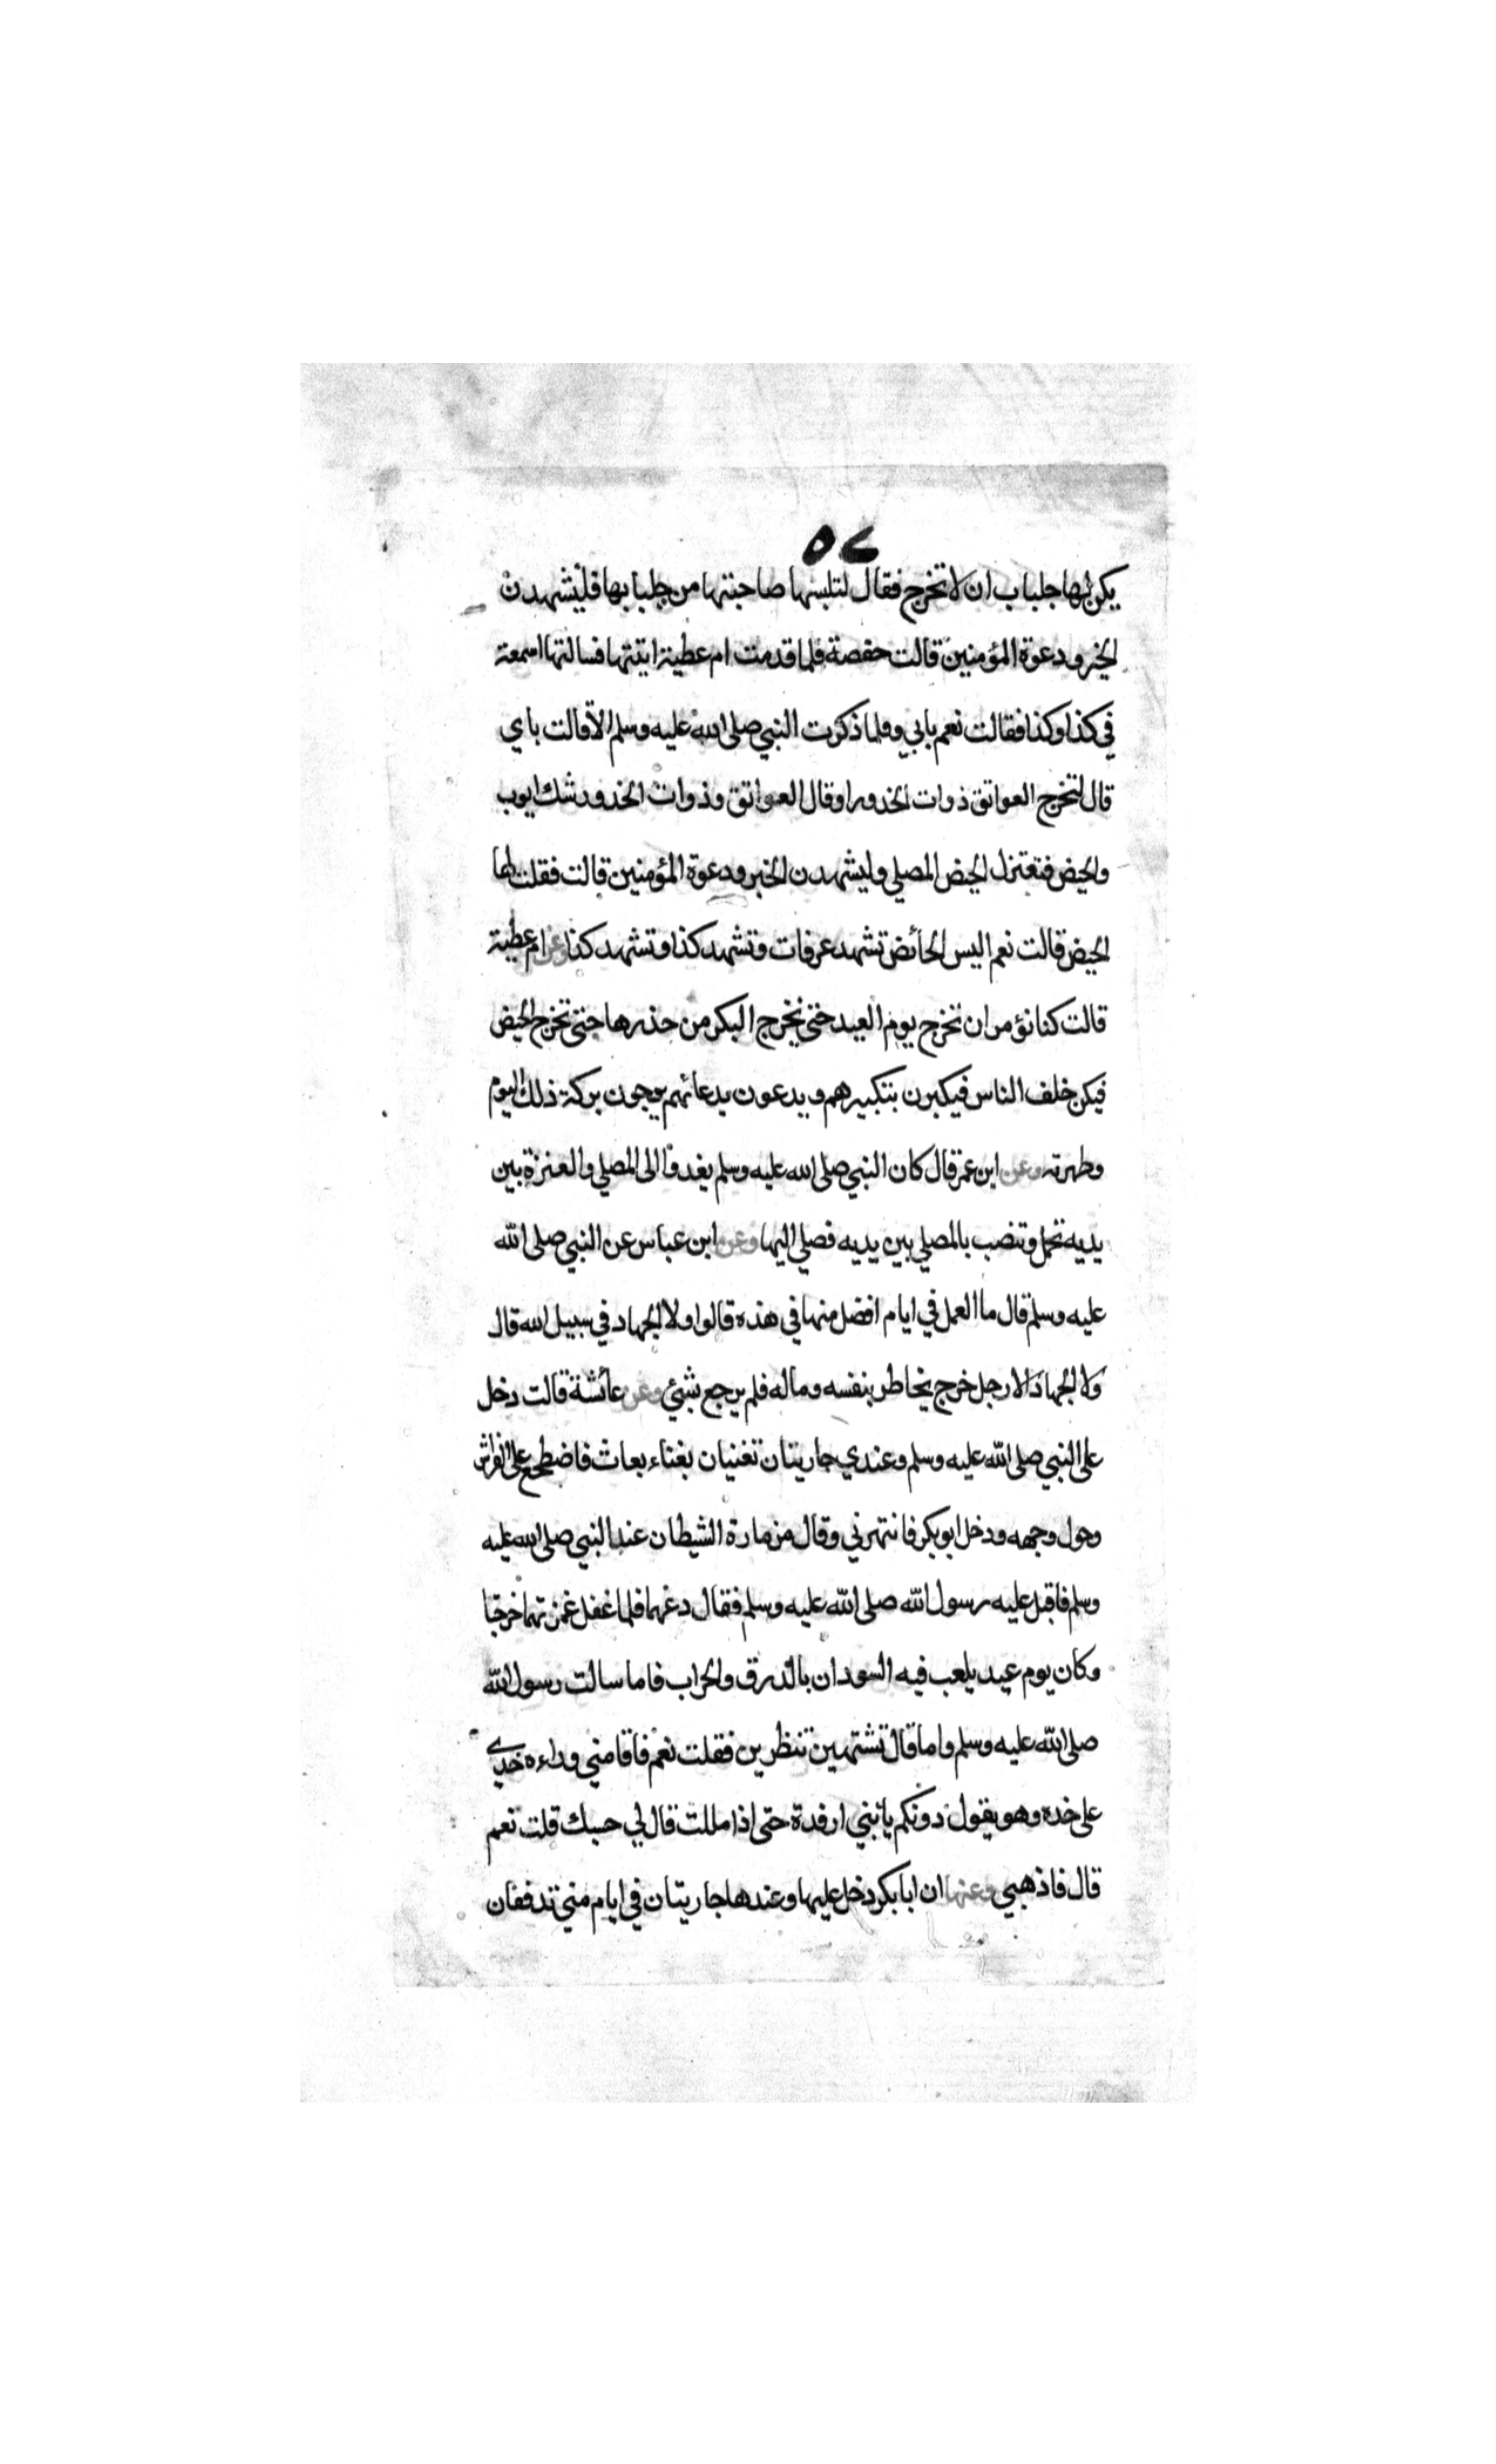 ٥٧
يكن لها جلباب ان لا تخرج فقال لتلبسها صاحبتها من جلبابها فليشهدن
الخير ودعوة المؤمنين قالت حفصة فلما قدمت ام عطية اتيتها فسالتها اسمعت
في كذا وكذا فقالت نعم بابي وفلما ذكرت النبي صلى الله عليه وسلم الا قالت بابي
قال لتخرج العواتق ذوات الخدور او قال العواتق وذوات الخدور شك ايوب
والحيض فتعتزل الحيض المصلي وليشهدن الخير ودعوة المؤمنين قالت فقلت لها
الحيض قالت نعم اليس الحائض تشهد عرفات وتشهد كذا وتشهد كذا وعن ام عطية
قالت كنا نؤمر ان نخرج يوم العيد حتى نخرج البكر من خدرها حتى تخرج الحيض
فيكن خلف الناس فيكبرن بتكبيرهم ويدعون بدعائهم يرجون بركة ذلك اليوم
وطهرته وعن ابن عمر قال كان النبي صلى الله عليه وسلم يغدوا الى المصلي والعنزة بين
يديه تحمل وتنصب بالمصلي بين يديه فصلي اليها وعن ابن عباس عن النبي صلى الله
عليه وسلم قال ما العمل في ايام افضل منها في هذه قالوا ولا الجهاد في سبيل الله قال
ولا الجهاد الا رجل خرج يخاطر بنفسه وماله فلم يرجع بشئ وعن عائشة قالت دخل
على النبي صلى الله عليه وسلم وعندي جاريتان تغنيان بغناء بعاث فاضطجع على الفراش
وحول وجهه ودخل ابو بكر فانتهرني وقال مزمارة الشيطان عند النبي صلى الله عليه
وسلم فاقبل عليه رسول الله صلى الله عليه وسلم فقال دعهما فلما غفل غمزتهما خرجتا
وكان يوم عيد يلعب فيه السودان بالدرق والحراب فاما سالت رسول الله
صلى الله عليه وسلم واما قال تشتهين تنظرين فقلت نعم فاقامني وراءه خدي
على خده وهو يقول دونكم يا بني ارفدة حتى اذا مللت قال لي حسبك قلت نعم
قال فاذهبي وعنها ان ابا بكر دخل عليها وعندها جاريتان في ايام منى تدففان